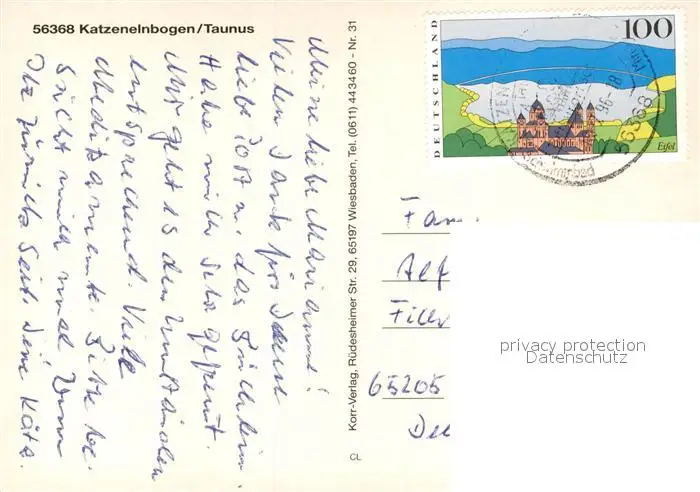 56368 Katzenelnbogen/Taunus
Meine liebe Marianne!
Vielen Dank für Deine
liebe Post u. das Büchlein.
Habe mich sehr gefreut.
Mir geht es den Umständen
entsprechend. Viele
Medikamente. Bitte be-
sucht mich mal wenn
Ihr Zeit. Deine Käte.
Korr-Verlag, Rüdesheimer Str. 29, 65197 Wiesbaden, Tel. (0611) 443460 - Nr. 31
CL
DEUTSCHLAND
100
Eifel
56368
Fam
Alf
65205
privacy protection
Datenschutz